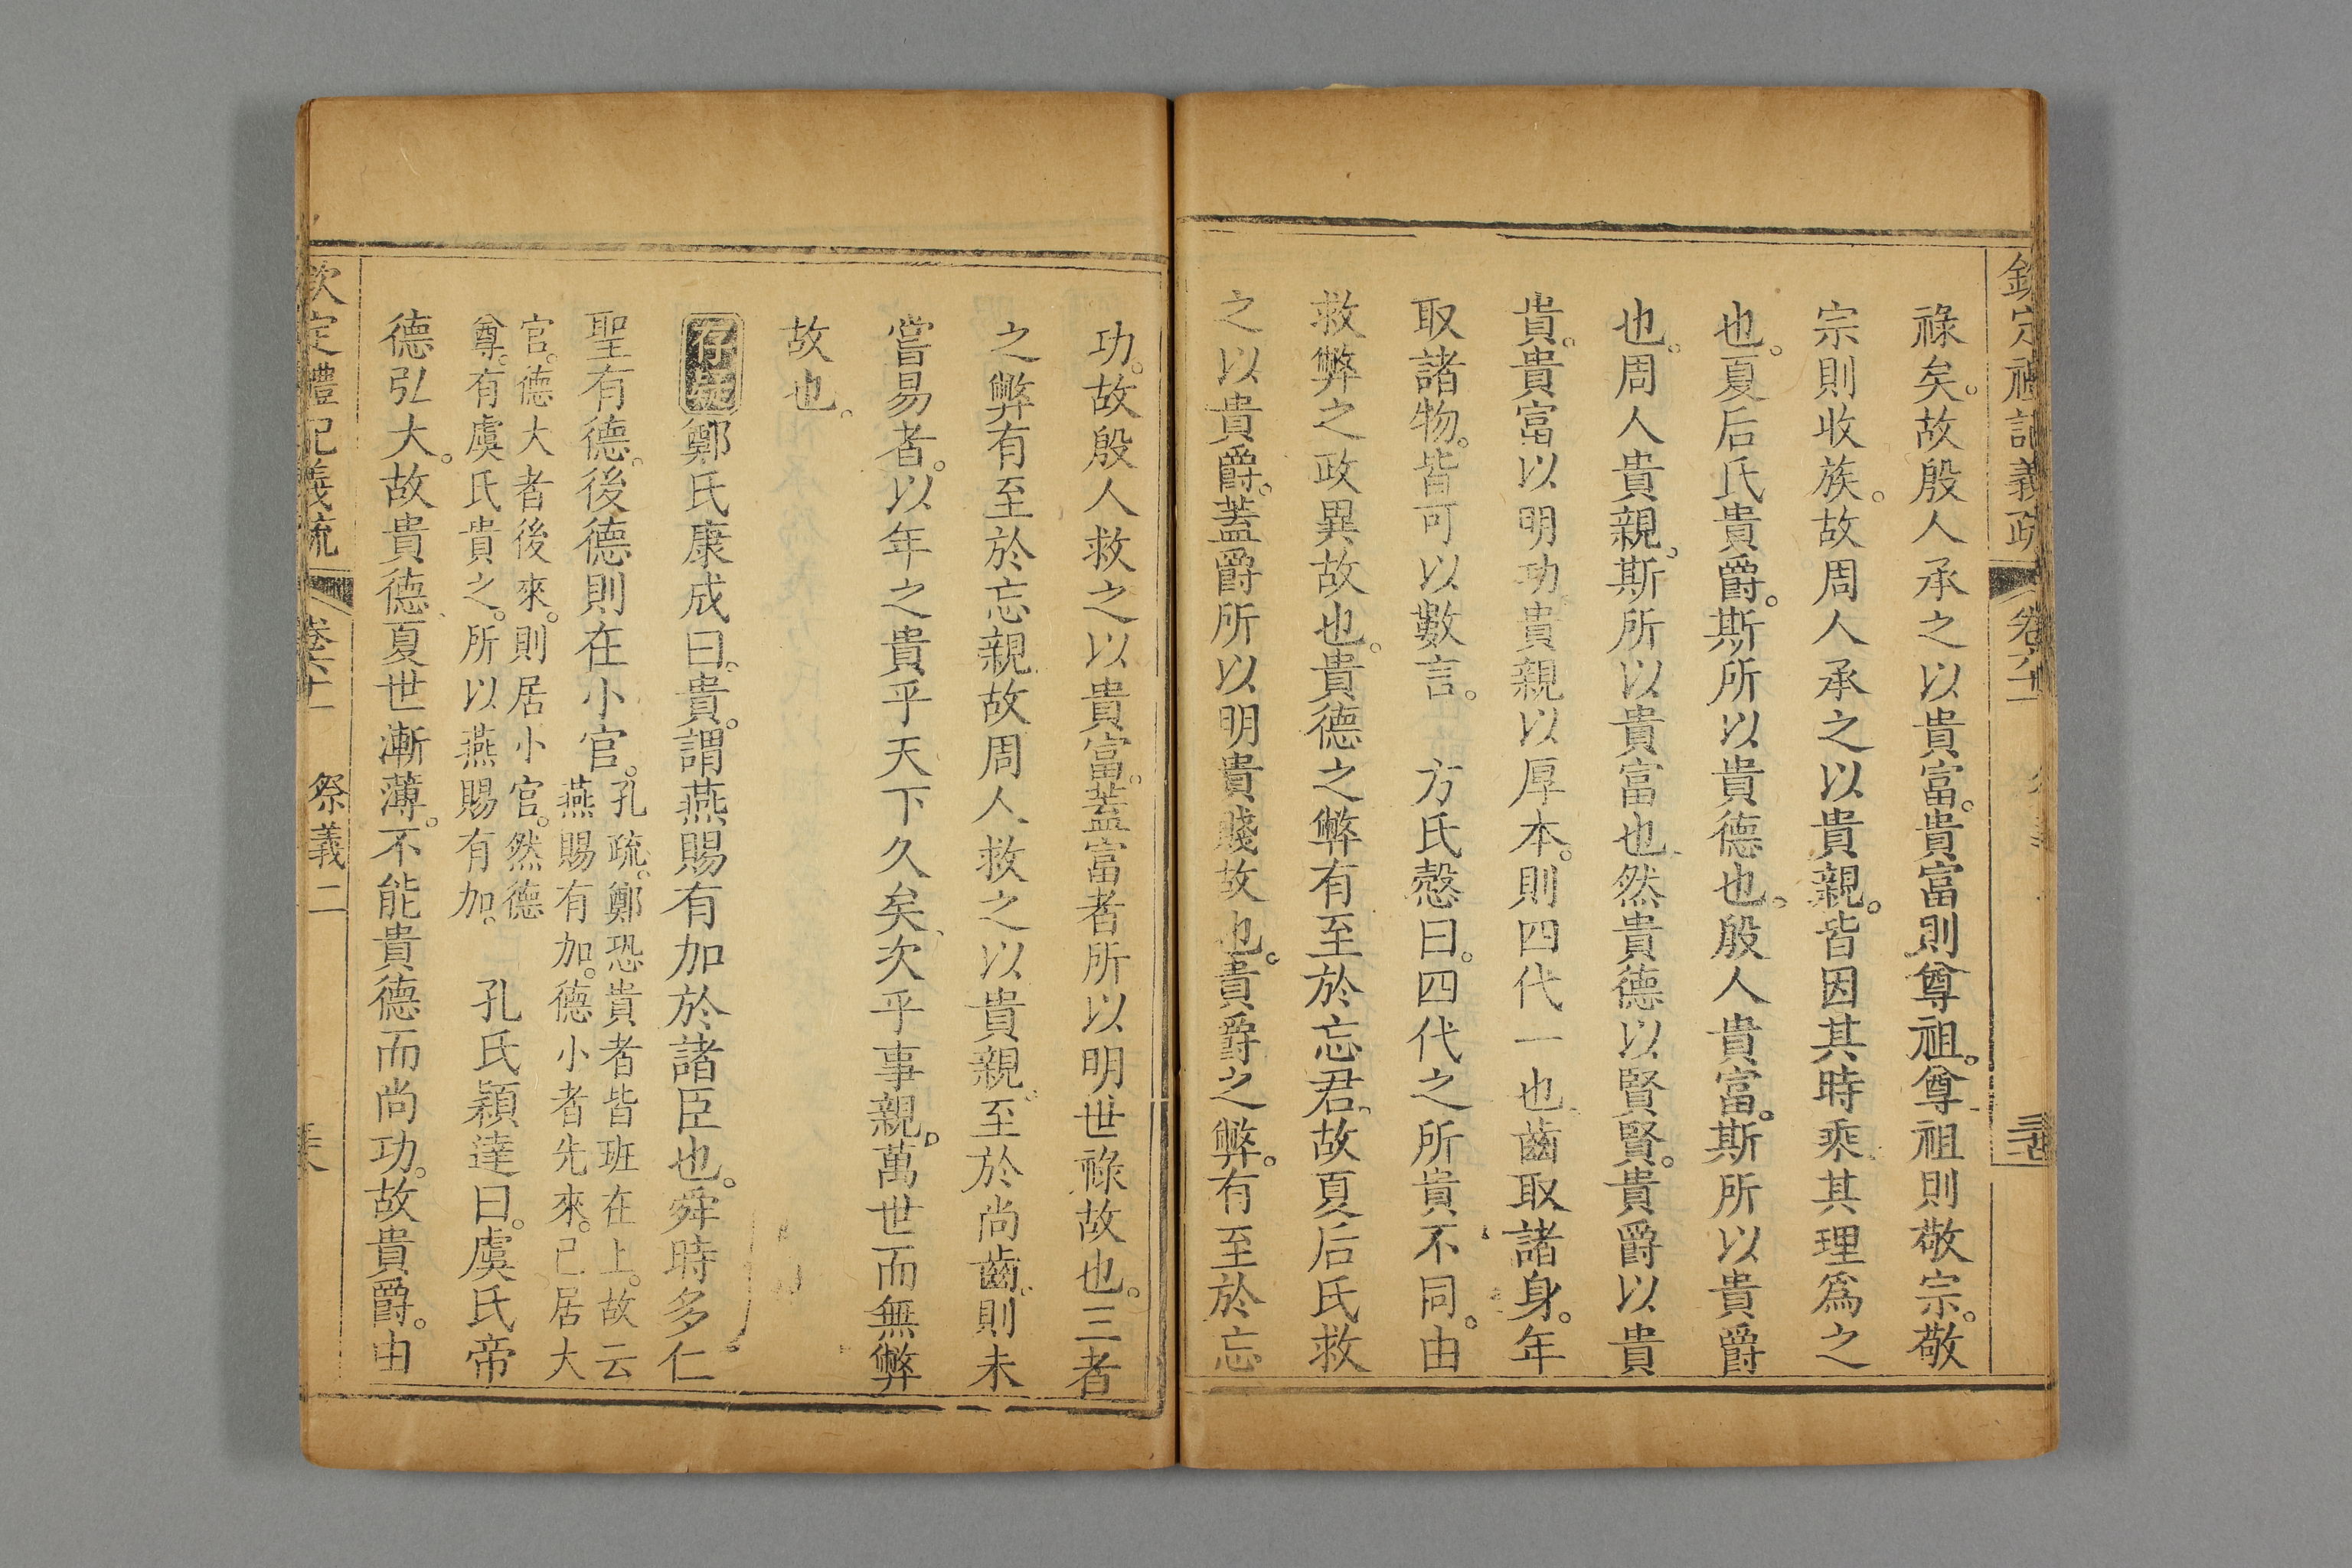 欽定禮記義疏 卷六十一
祿矣。故殷人承之以貴富。貴富則尊祖。尊祖則敬宗。敬
宗則收族。故周人承之以貴親。皆因其時乘其理爲之
也。夏后氏貴爵。斯所以貴德也。殷人貴富。斯所以貴爵
也。周人貴親。斯所以貴富也。然貴德以賢賢。貴爵以貴
貴。貴富以明功。貴親以厚本。則四代一也。齒取諸身。年
取諸物。皆可以數言。 方氏慤曰。四代之所貴不同。由
救弊之政異故也。貴德之弊有至於忘君。故夏后氏救
之以貴爵。蓋爵所以明貴賤故也。貴爵之弊。有至於忘
功。故殷人救之以貴富。蓋富者所以明世祿故也。三者
之弊有至於忘親。故周人救之以貴親。至於尚齒。則未
嘗易者。以年之貴乎天下久矣。次乎事親。萬世而無弊
故也。
存疑 鄭氏康成曰。貴。謂燕賜有加於諸臣也。舜時多仁
聖有德。後德則在小官。
孔疏。鄭恐貴者皆班在上。故云
燕賜有加。德小者先來。已居大
官。德大者後來。則居小官。然德
尊。有虞氏貴之。所以燕賜有加。
孔氏穎達曰。虞氏帝
德弘大。故貴德。夏世漸薄。不能貴德而尚功。故貴爵。由
欽定禮記義疏 卷六十一 祭義二